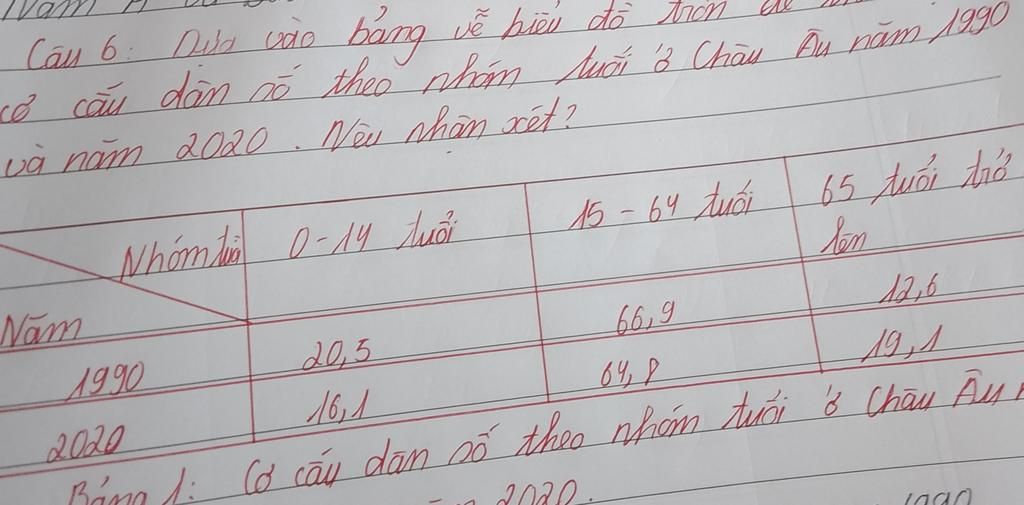 Năm
Câu 6: Dựa vào bảng vẽ biểu đồ tròn
cơ cấu dân số theo nhóm tuổi ở Châu Âu năm 1990
và năm 2020. Nêu nhận xét?
Nhóm tuổi 0-14 tuổi 15-64 tuổi 65 tuổi trở
lên
Năm
1990 20,5 66,9 12,6
2020 16,1 64,8 19,1
Bảng 1: Cơ cấu dân số theo nhóm tuổi ở Châu Âu
2020.
1990